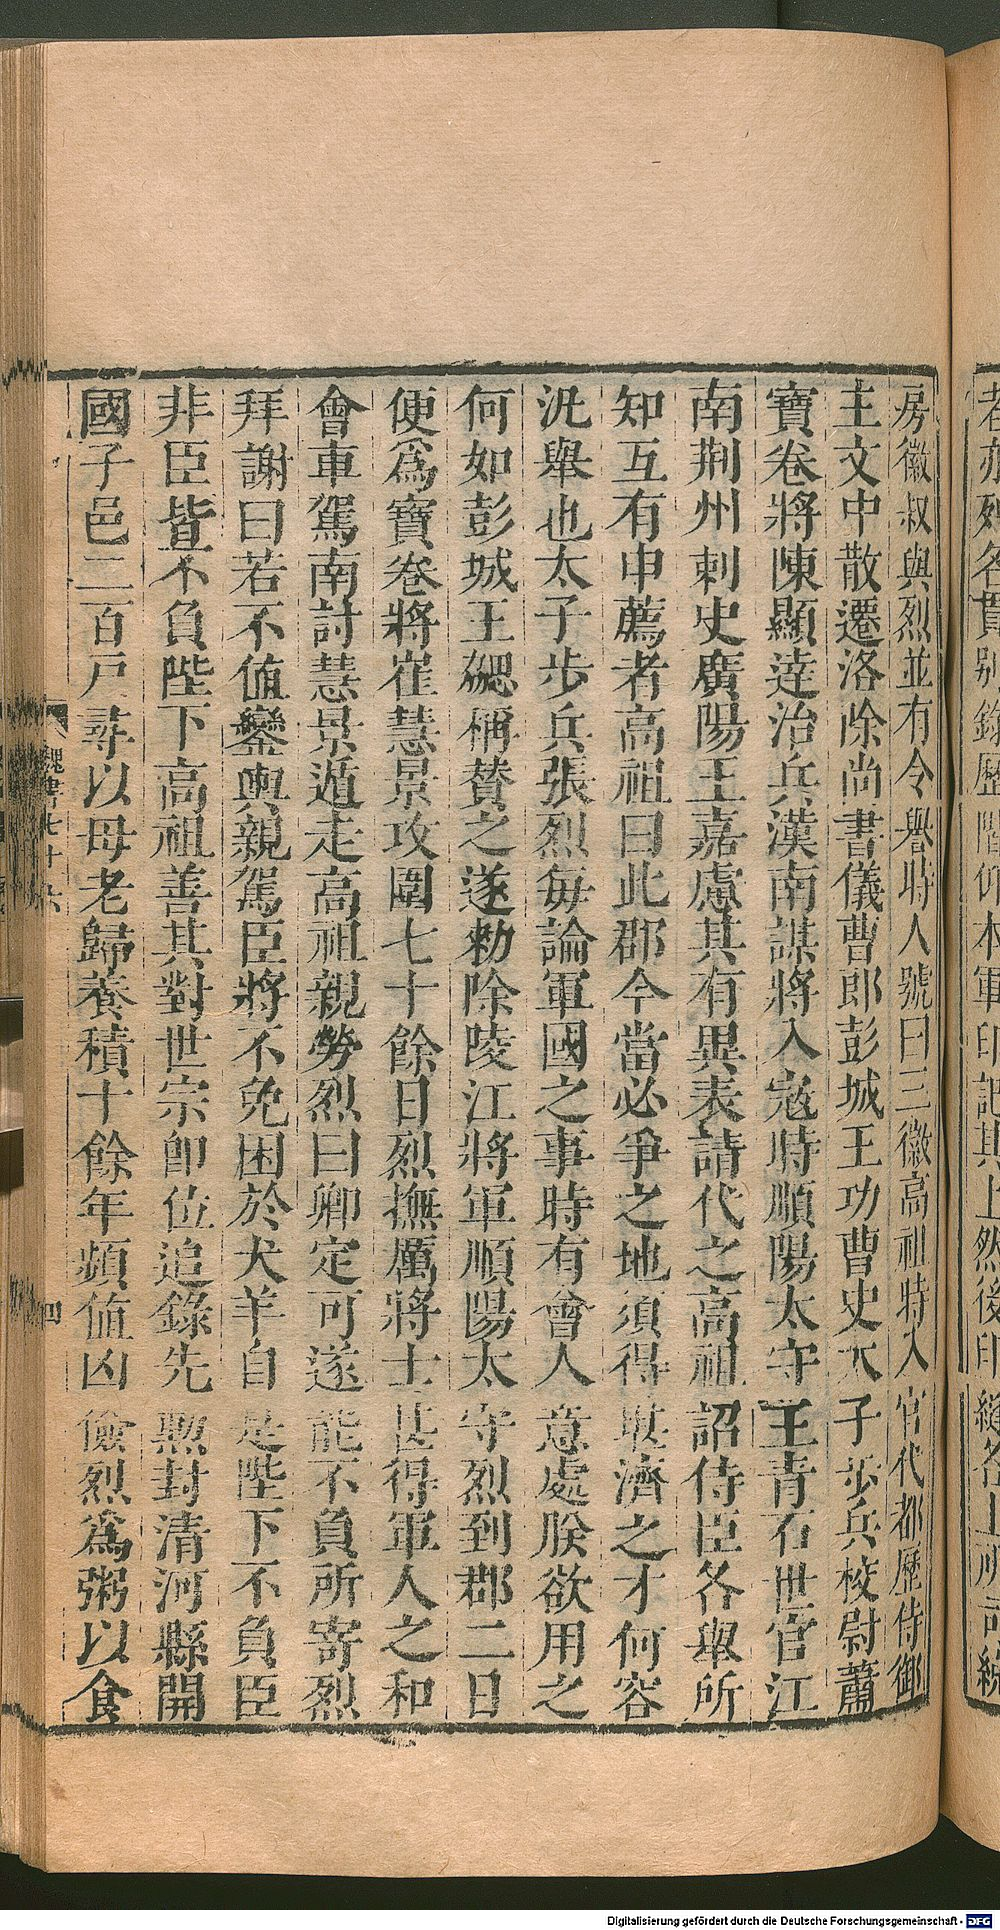 房徽叔與烈並有令譽時人號曰三徽高祖時入官代都歷侍御
主文中散遷洛除尚書儀曹郎彭城王功曹史太子步兵校尉蕭
寶卷將陳顯達治兵漢南謀將入寇時順陽太守王青石世官江
南荆州刺史廣陽王嘉慮其有異表請代之高祖詔侍臣各舉所
知互有申薦者高祖曰此郡今當必爭之地須得堪濟之才何容
汎舉也太子步兵張烈每論軍國之事時有會人意處朕欲用之
何如彭城王勰稱贊之遂勑除陵江將軍順陽太守烈到郡二日
便爲寶卷將崔慧景攻圍七十餘日烈撫厲將士甚得軍人之和
會車駕南討慧景遁走高祖親勞烈曰卿定可遂能不負所寄烈
拜謝曰若不值鑾輿親駕臣將不免困於犬羊自是陛下不負臣
非臣皆不負陛下高祖善其對世宗卽位追錄先勲封清河縣開
國子邑二百戸尋以母老歸養積十餘年頻值凶儉烈爲粥以食
魏書七十六
四
Digitalisierung gefördert durch die Deutsche Forschungsgemeinschaft - DFG